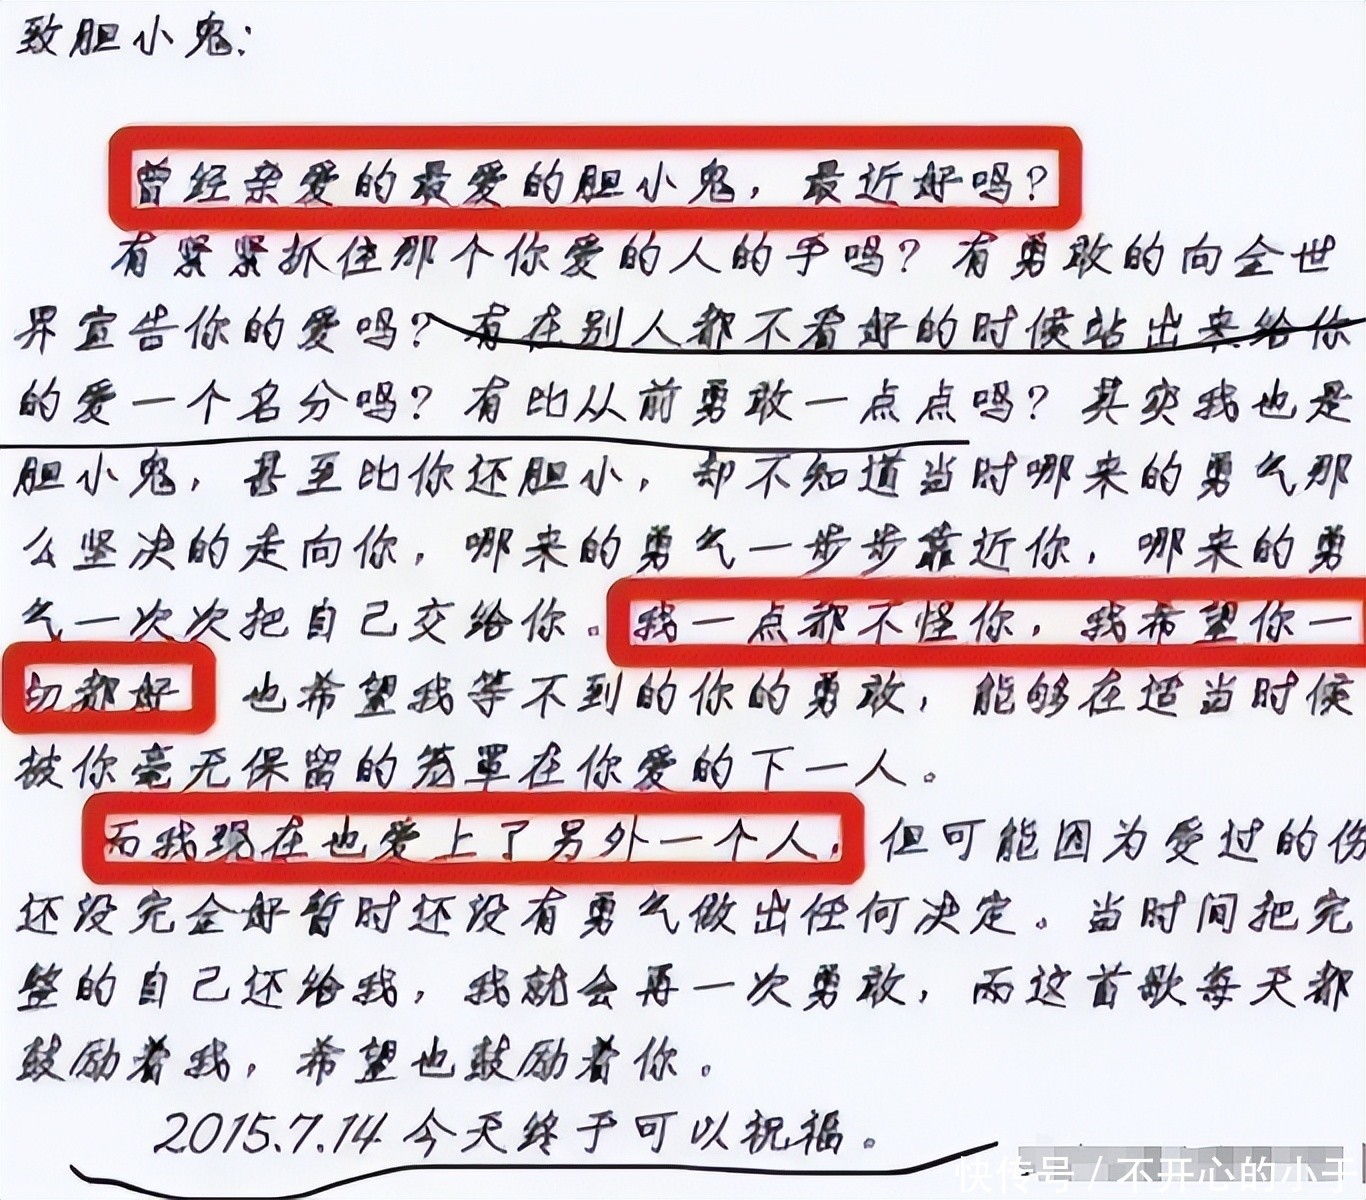 致胆小鬼:
曾经亲爱的最爱的胆小鬼，最近好吗?
有紧紧抓住那个你爱的人的手吗? 有勇敢的向全世
界宣告你的爱吗? 有在别人都不看好的时候站出来给你
的爱一个名分吗? 有比从前勇敢一点点吗? 其实我也是
胆小鬼，甚至比你还胆小，却不知道当时哪来的勇气那
么坚决的走向你，哪来的勇气一步步靠近你，哪来的勇
气一次次把自己交给你。我一点都不怪你，我希望你一
切都好 也希望我等不到的你的勇敢，能够在适当时候
被你毫无保留的笼罩在你爱的下一人。
而我现在也爱上了另外一个人，但可能因为受过的伤
还没完全好暂时还没有勇气做出任何决定。当时间把完
整的自己还给我，我就会再一次勇敢，而这首歌每天都
鼓励着我，希望也鼓励着你。
2015.7.14 今天终于可以祝福。
快传号 / 不开心的小手